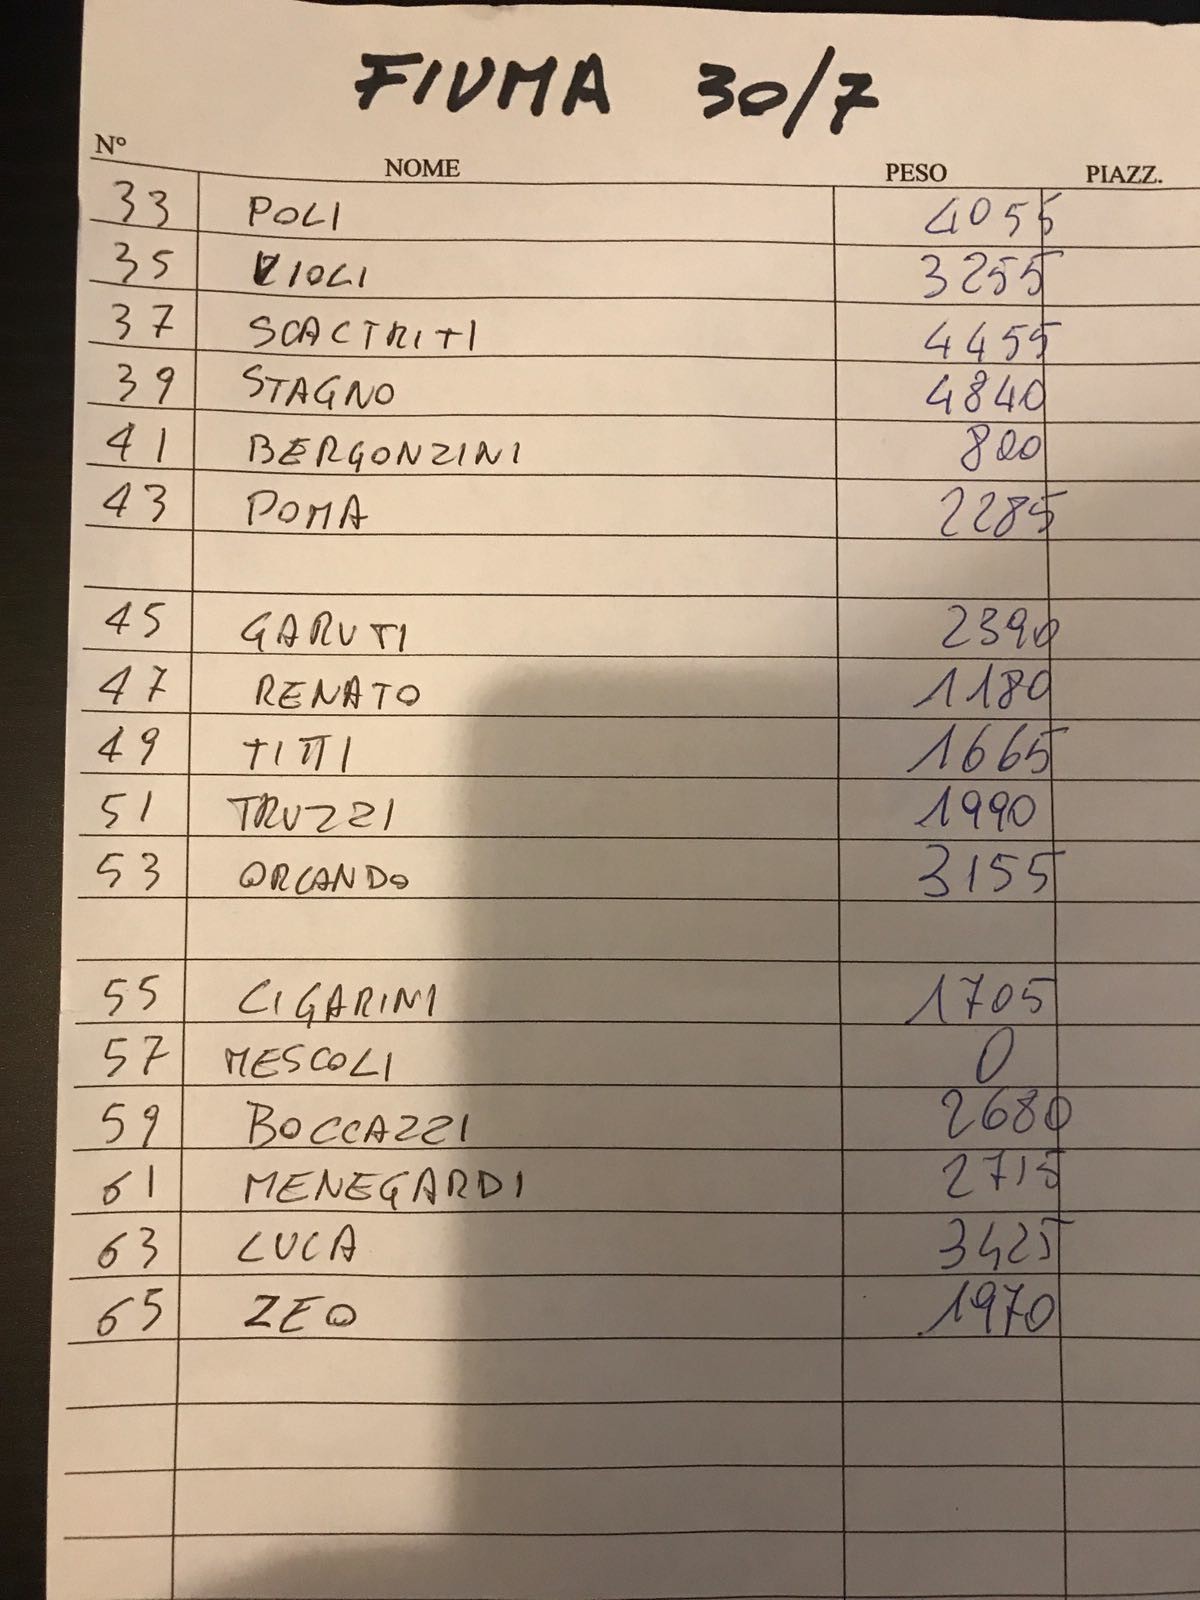 FIUMA 30/7
N° NOME PESO PIAZZ.
33 POLI 4055
35 VIOLI 3255
37 SCALTRITI 4455
39 STAGNO 4840
41 BERGONZINI 800
43 POMA 2285
45 GARUTI 2390
47 RENATO 1180
49 TITTI 1665
51 TRUZZI 1990
53 ORLANDO 3155
55 CIGARINI 1705
57 MESCOLI 0
59 BOCCAZZI 2680
61 MENEGARDI 2715
63 LUCA 3425
65 ZEO 1970